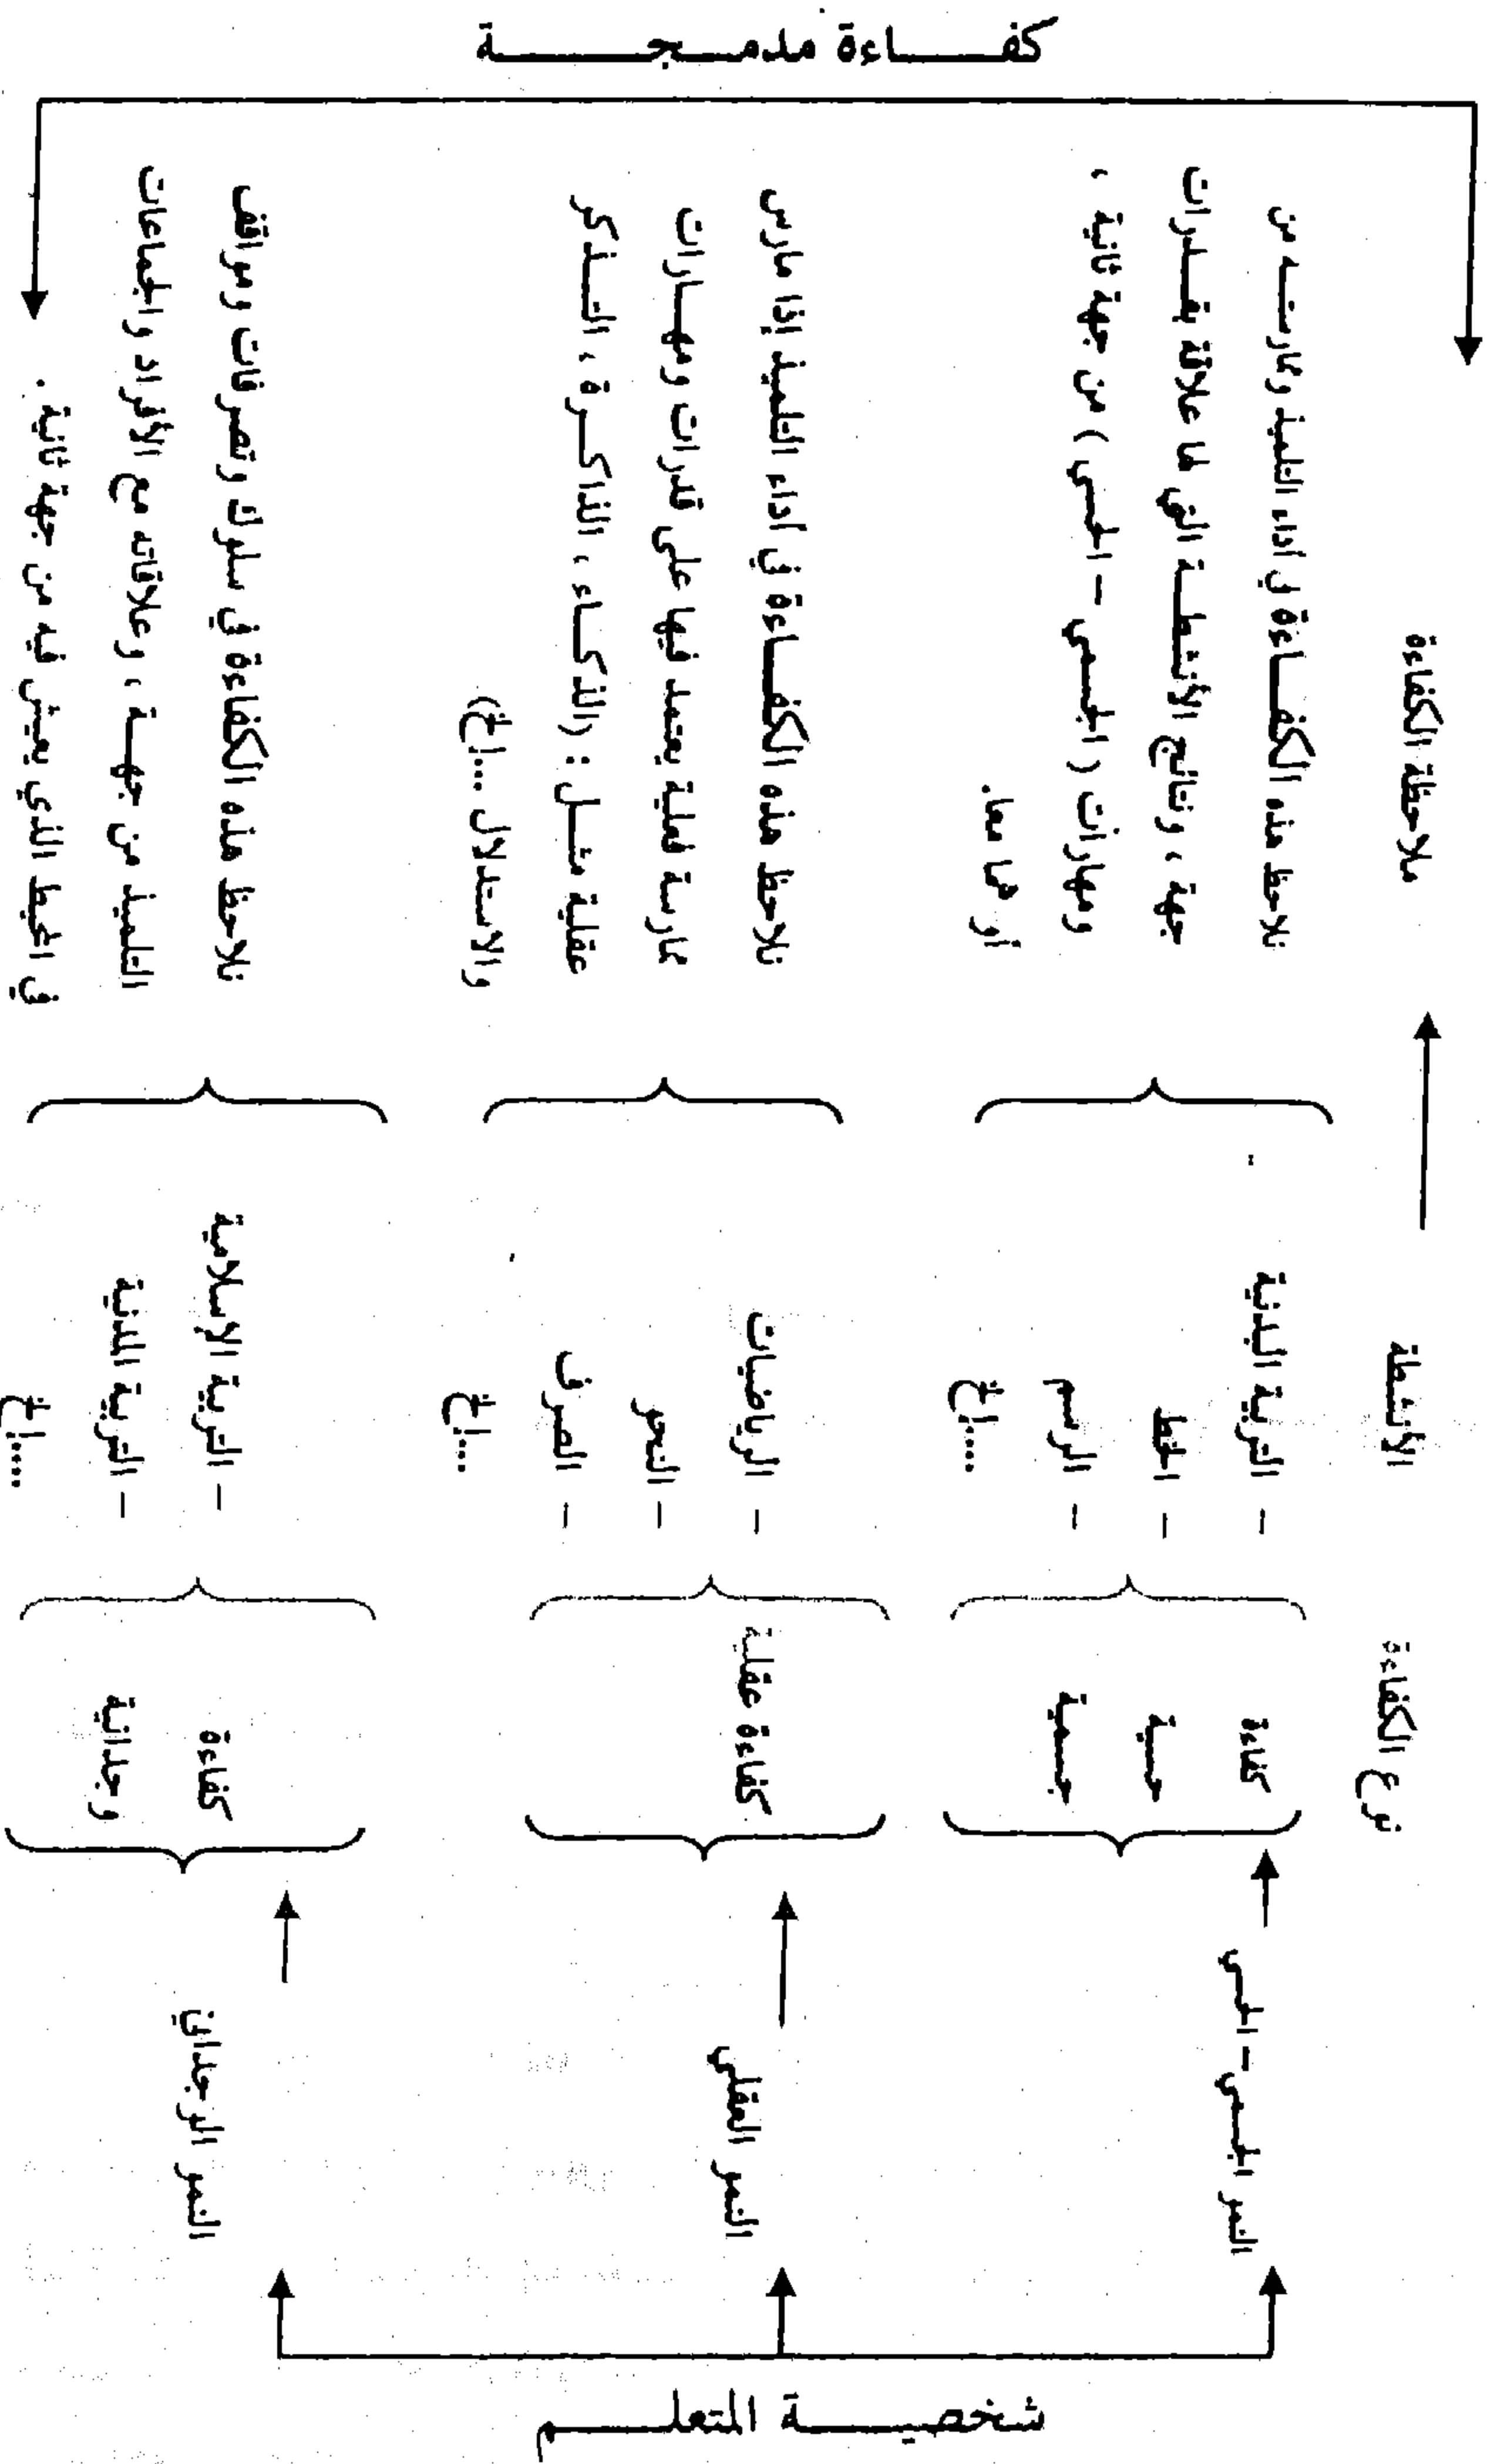 كفاءة مدمجة
ملاحظة الكفاءة
نلاحظ هذه الكفاءة في أداء التلميذ وممارسته من
جهة ، ونتائج الأنشطة التي لها علاقة بقدرات
ومهارات ( الجسمي – الحسي ) من جهة ثانية ،
أو هما معا.
نلاحظ هذه الكفاءة في أداء التلميذ إذا مارس
ممارسة فعلية يعتمد فيها على قدرات ومهارات
عقلية مثل : (الذكاء ، الذاكرة ، التذكر
والاستدلال ...إلخ)
نلاحظ هذه الكفاءة في سلوك وتصرفات ومواقف
التلميذ من جهة ، وعلاقاته مع الأفراد والجماعات
في المحيط الذي يعيش فيه من جهة ثانية .
الأنشطة
– التربية البدنية
– الخط
– الرسم
....إلخ
– الرياضيات
– النحو
– الصرف
....إلخ
– التربية الإسلامية
– التربية المدنية
....إلخ
نوع الكفاءة
كفاءة
حسية
جسمية
كفاءة عقلية
كفاءة
وجدانية
النمو الجسمي – الحسي
النمو العقلي
النمو الوجداني
شخصية المتعلم